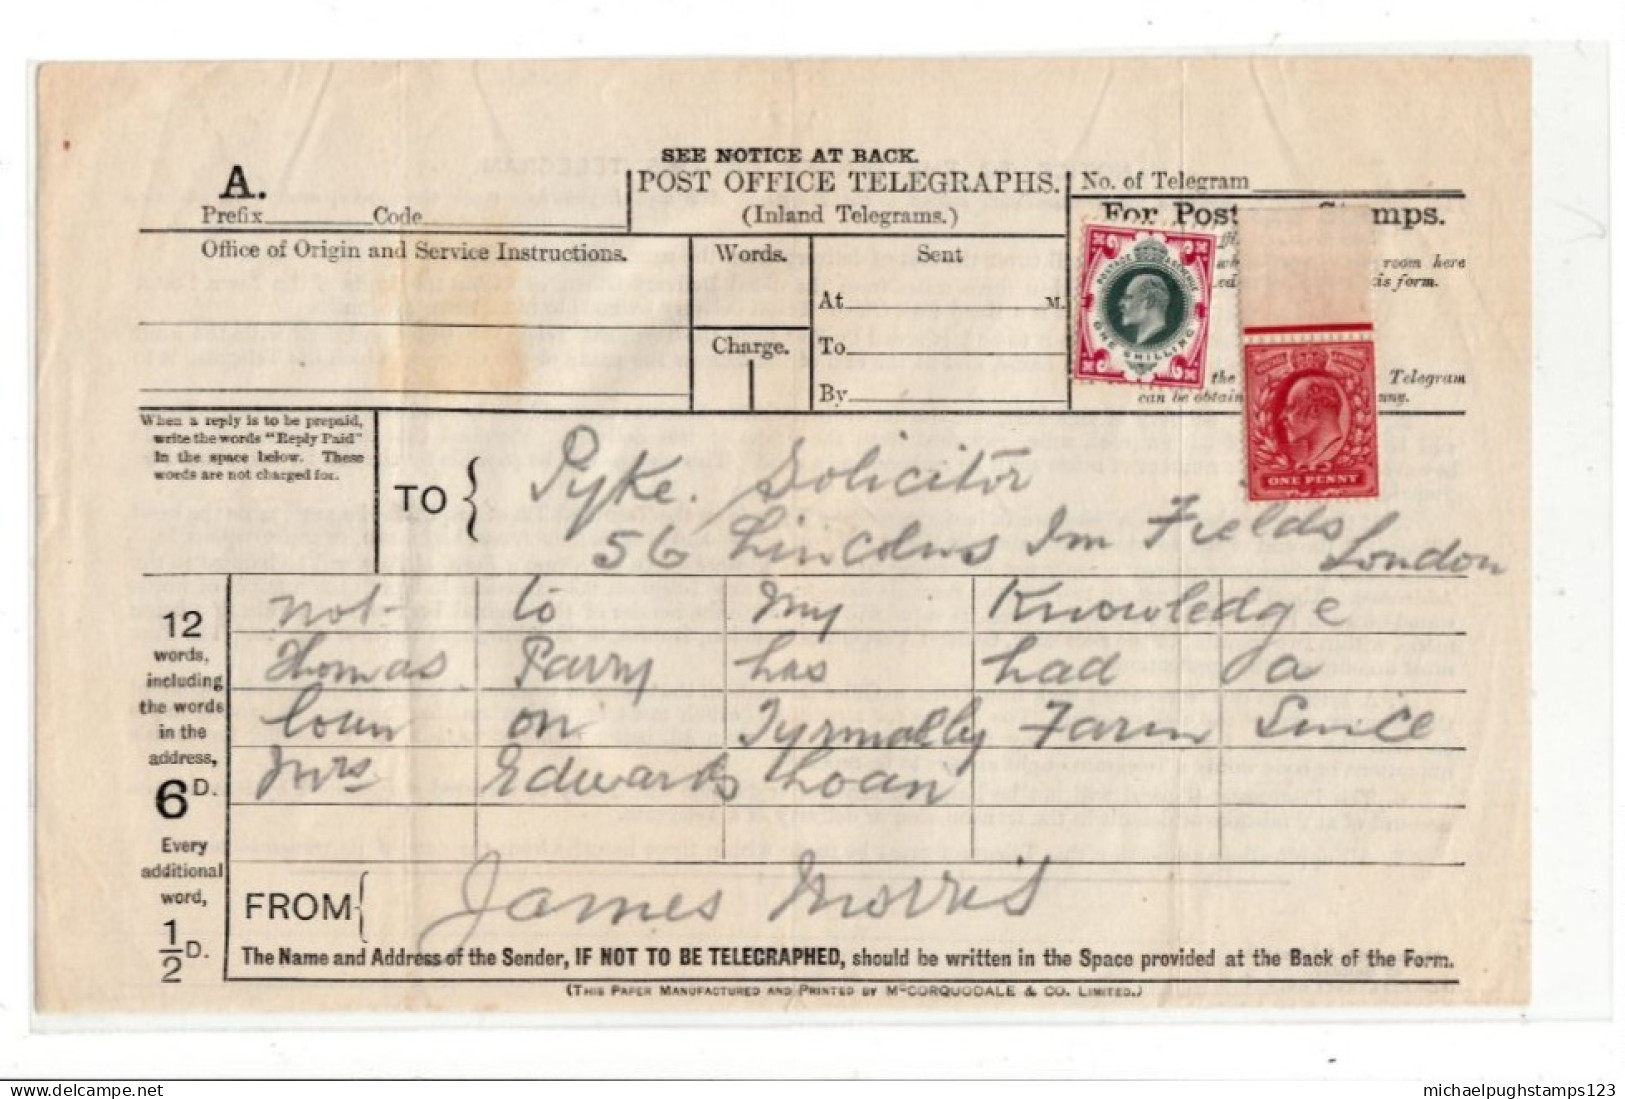 SEE NOTICE AT BACK.
A.
POST OFFICE TELEGRAPHS.
No. of Telegram
Prefix Code
(Inland Telegrams.)
For Post mps.
Office of Origin and Service Instructions.
Words.
Sent
room here
is form.
At M.
POSTAGE & REVENUE
ONE SHILLING
Charge.
To
the Telegram
By
can be obtain nny.
ONE PENNY
When a reply is to be prepaid,
write the words "Reply Paid"
in the space below. These
words are not charged for.
TO
Pyke. Solicitor
56 Lincolns Inn Fields London
12
words,
including
the words
in the
address,
6D.
Every
additional
word,
1/2 D.
not to my Knowledge
Thomas Parry has had a
loan on Farm Since
Mrs Edwards Loan
FROM
James Morris
The Name and Address of the Sender, IF NOT TO BE TELEGRAPHED, should be written in the Space provided at the Back of the Form.
(THIS PAPER MANUFACTURED AND PRINTED BY McCORQUODALE & CO. LIMITED.)
www.delcampe.net
michaelpughstamps123